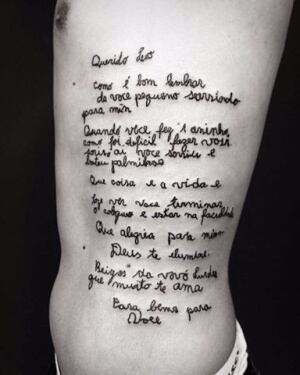 Querido Leo
como é bom lembrar
de voce pequeno sorrindo
para mim
Quando você fez 1 aninho,
como foi dificil fazer voce
voce sorriu e
bateu palminhas
Que coisa e a vida e
hoje ver voce terminar
o colegio e entrar na faculdade
Que alegria para mim
Deus te ilumine.
Beijos da vovó Lurdes
que muito te ama
Para bens para
Você